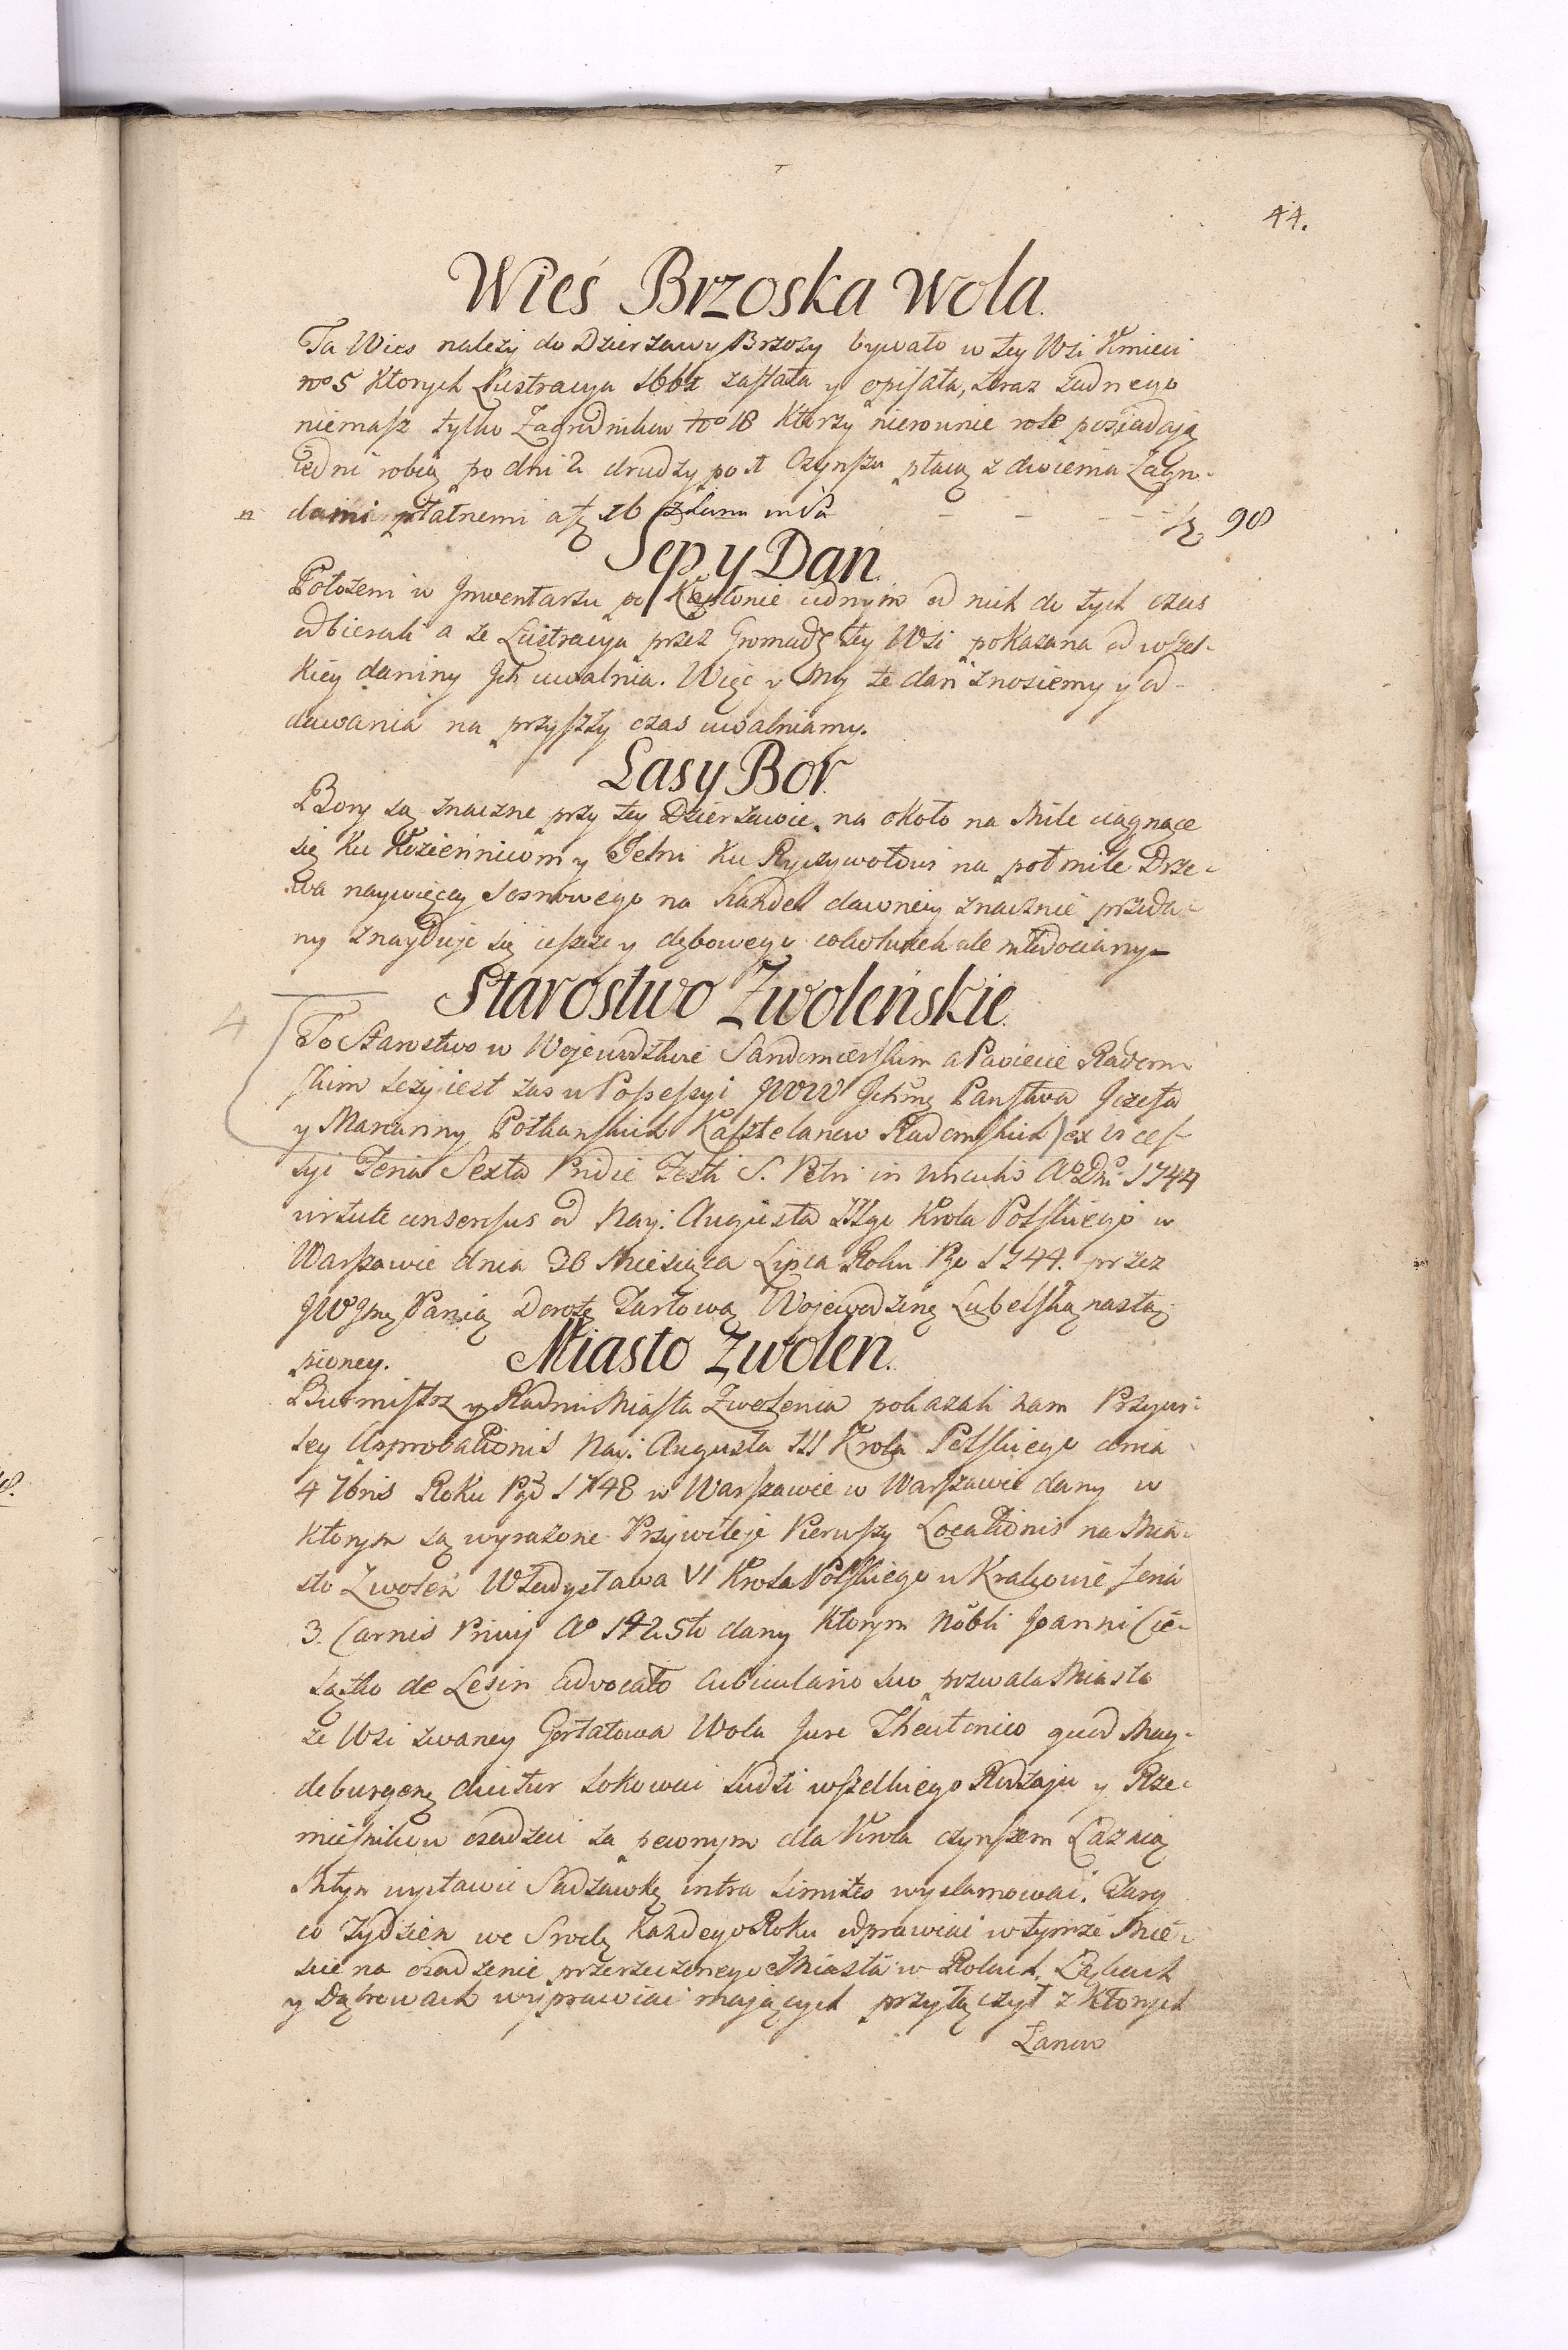 44.
Wieś Brzoska Wola.
Ta Wies należy do Dzierzawy Brzozy bywało w tey Wsi Kmieci
no 5 Ktorych Lustracya 1661 zastała y opisała, teraz żadnego
niemasz tylko Zagrodnikow No 18 Ktorzy nierownie role posiadają
iedni robią po dni 2 drudzy po 1 Czynszu płacą z dwiema Zagro-
dami płatnemi a 16
98
Sep y Dań.
Położeni w Jnwentarzu po Kapłonie iednym od nich do tych czas
odbierali a że Lustracya przez Gromadę tey Wsi pokazana od wszel-
kiey daniny Jch uwalnia. Więc y My te dań znosiemy y od
dawania na przyszły czas uwalniamy.
Lasy Bor.
Bory są znaczne przy tey Dzierzawie na około na Mile ciągnące
się Ku Koziennicom y Jedlni Ku Ryczywołowi na poł mile Drze-
wa naywięcey Sosnowego na handel dawniey znacznie przeda-
ny znayduje się ieszcze y dębowego cokolwiek ale młodociany
Starostwo Zwoleńskie.
4
To Starostwo w Wojewodztwie Sandomierskim a Powiecie Radom
skim leży iest zas w Possessyi JWW Jchmę Panstwa Jozefa
y Maryanny Potkanskich Kasztelanow Radomskich) ex vi ces-
syi Feria Sexta Pridie Festi S. Petri in vinculis Ao Dni 1744
virtute consensus od Nay: Augusta IIIgo Krola Polskiego w
Warszawie dnia 30 Miesiąca Lipca Roku Pgo 1744. przez
JW Jmę Panią Dorotę Tarłową Wojewodzinę Lubelską nastą-
pioney.
Miasto Zwolen.
Burmistrz y Radni Miasta Zwolenia pokazali nam Przywi-
ley Approbationis Nay: Augusta III Krola Polskiego dnia
4 7bris Roku Pgo 1748 w Warszawie w Warszawie dany w
ktorym są wyrażone Przywileje Pierwszy Locationis na Mia-
sto Zwoleń Władysława VI Krola Polskiego w Krakowie feria
3. Carnis Privij Ao 1425to dany Ktorym Nobli Joanni Cie-
lątko de Lesin advocato Cubiculario suo pozwala Miasto
ze Wsi zwaney Gotałowa Wola Jure Theutonico quod Mag-
deburgen dicitur lokowai ludzi wszelkiego Rodzaju y Rze-
mieslnikow osadzać za pewnym dla Krola czynszem Łaznią
Młyn wystawić Sadzawkę intra limites wystawować. Targ
co Tydzień we Srodę każdego Roku odprawiać w tymże Mie-
scie na osadzenie przerzeczonego Miasta w Rolach, Łąkach
y Dąbrowach wyprawiać mających przyłączył z Ktorych
Łanow